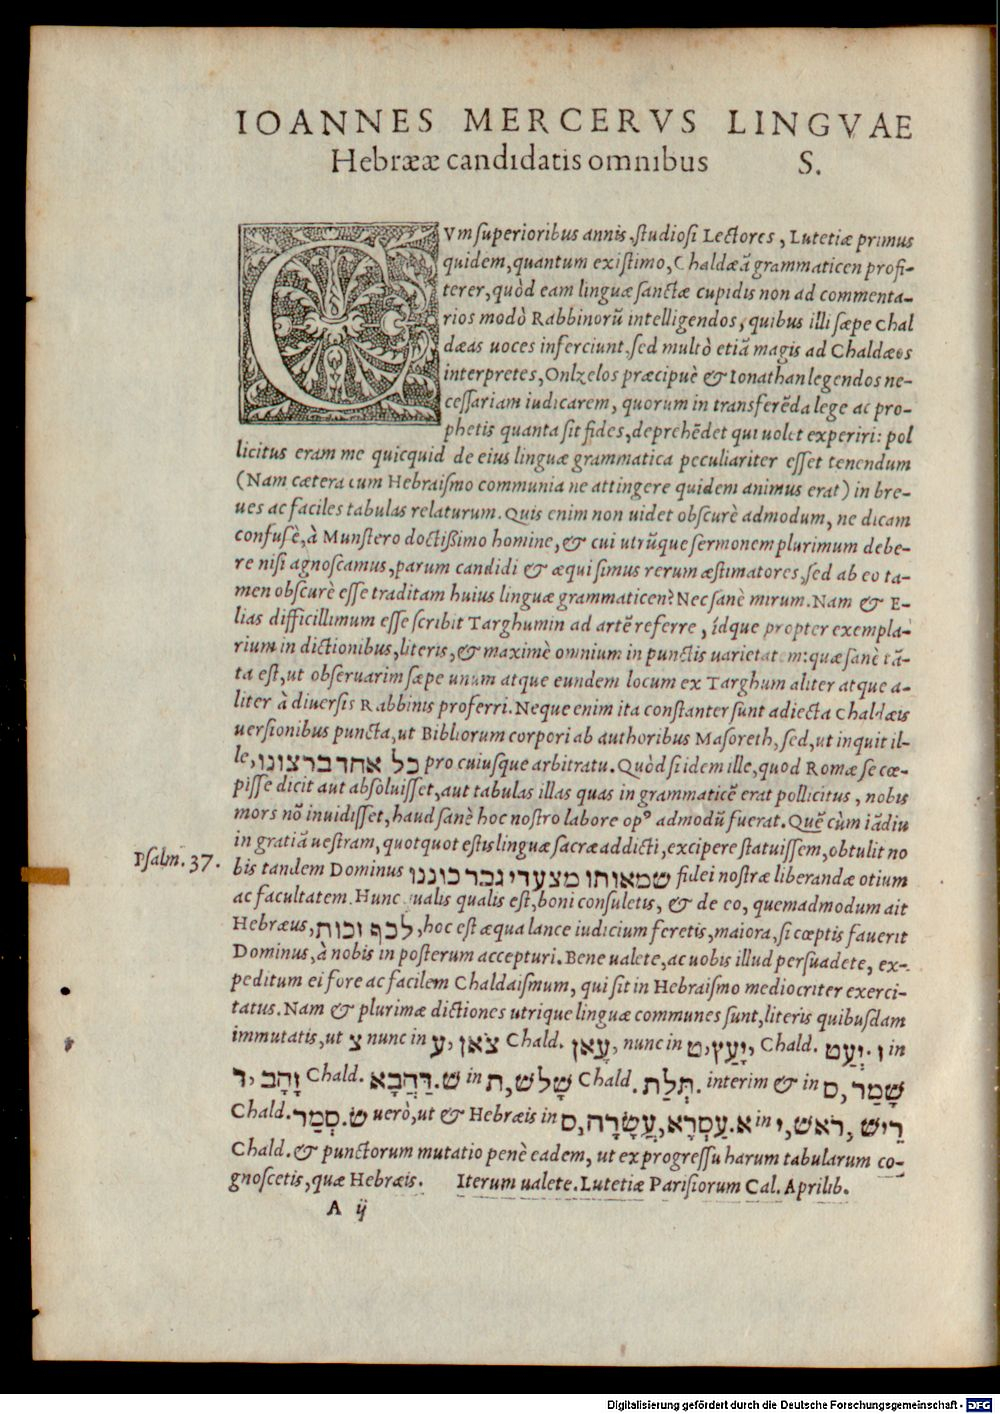 IOANNES MERCERVS LINGVAE
Hebrææ candidatis omnibus S.
CVm superioribus annis, studiosi Lectores, Lutetiæ primus
quidem, quantum existimo, Chaldæā grammaticen profi-
terer, quòd eam linguæ sanctæ cupidis non ad commenta-
rios modò Rabbinorū intelligendos, quibus illi sæpe Chal
dæas uoces inferciunt, sed multò etiā magis ad Chaldæos
interpretes, Onkelos præcipuè & Ionathan legendos ne-
cessariam iudicarem, quorum in transferēda lege ac pro-
phetis quanta sit fides, deprehēdet qui uolet experiri: pol
licitus eram me quicquid de eius linguæ grammatica peculiariter esset tenendum
(Nam cætera cum Hebraismo communia ne attingere quidem animus erat) in bre-
ues ac faciles tabulas relaturum. Quis enim non uidet obscurè admodum, ne dicam
confusè, à Munstero doctißimo homine, & cui utrūque sermonem plurimum debe-
re nisi agnoscamus, parum candidi & æqui simus rerum æstimatores, sed ab eo ta-
men obscurè esse traditam huius linguæ grammaticen? Nec sanè mirum. Nam & E-
lias difficillimum esse scribit Targhumin ad artē referre, idque propter exempla-
rium in dictionibus, literis, & maximè omnium in punctis uarietatem: quæ sanè tā-
ta est, ut obseruarim sæpe unum atque eundem locum ex Targhum aliter atque a-
liter à diuersis Rabbinis proferri. Neque enim ita constanter sunt adiecta Chaldæis
uersionibus puncta, ut Bibliorum corpori ab authoribus Masoreth, sed, ut inquit il-
le, כל אחד ברצונו, pro cuiusque arbitratu. Quòd si idem ille, quod Romæ se cœ-
pisse dicit aut absoluisset, aut tabulas illas quas in grammaticē erat pollicitus, nobis
mors nō inuidisset, haud sanè hoc nostro labore opꝰ admodū fuerat. Quē cùm iādiu
in gratiā uestram, quotquot estis linguæ sacræ addicti, excipere statuissem, obtulit no
Psalm. 37. bis tandem Dominus שמאותו מצעדי גבר כוננו fidei nostræ liberandæ otium
ac facultatem. Hunc qualis qualis est, boni consuletis, & de eo, quemadmodum ait
Hebræus, לכף זכות, hoc est æqua lance iudicium feretis, maiora, si cœptis fauerit
Dominus, à nobis in posterum accepturi. Bene ualete, ac uobis illud persuadete, ex-
peditum ei fore ac facilem Chaldaismum, qui sit in Hebraismo mediocriter exerci-
tatus. Nam & plurimæ dictiones utrique linguæ communes sunt, literis quibusdam
immutatis, ut צ nunc in ע, צֹאן Chald. עָאן, nunc in ט, יָעַץ, Chald. יְעַט. ו in
ד, זָהָב Chald. דַּהֲבָא. ש in ת, שָׁלֹשׁ Chald. תְּלַת. interim & in ס, שָׁמַר
Chald. סְמַר. שׂ uerò, ut & Hebræis in ס, עֲשָׂרָה, עַסְרָא. א in י, רֹאשׁ, רֵישׁ
Chald. & punctorum mutatio penè eadem, ut ex progressu harum tabularum co-
gnoscetis, quæ Hebræis. Iterum ualete. Lutetiæ Parisiorum Cal. Aprilib.
A ij
Digitalisierung gefördert durch die Deutsche Forschungsgemeinschaft - DFG